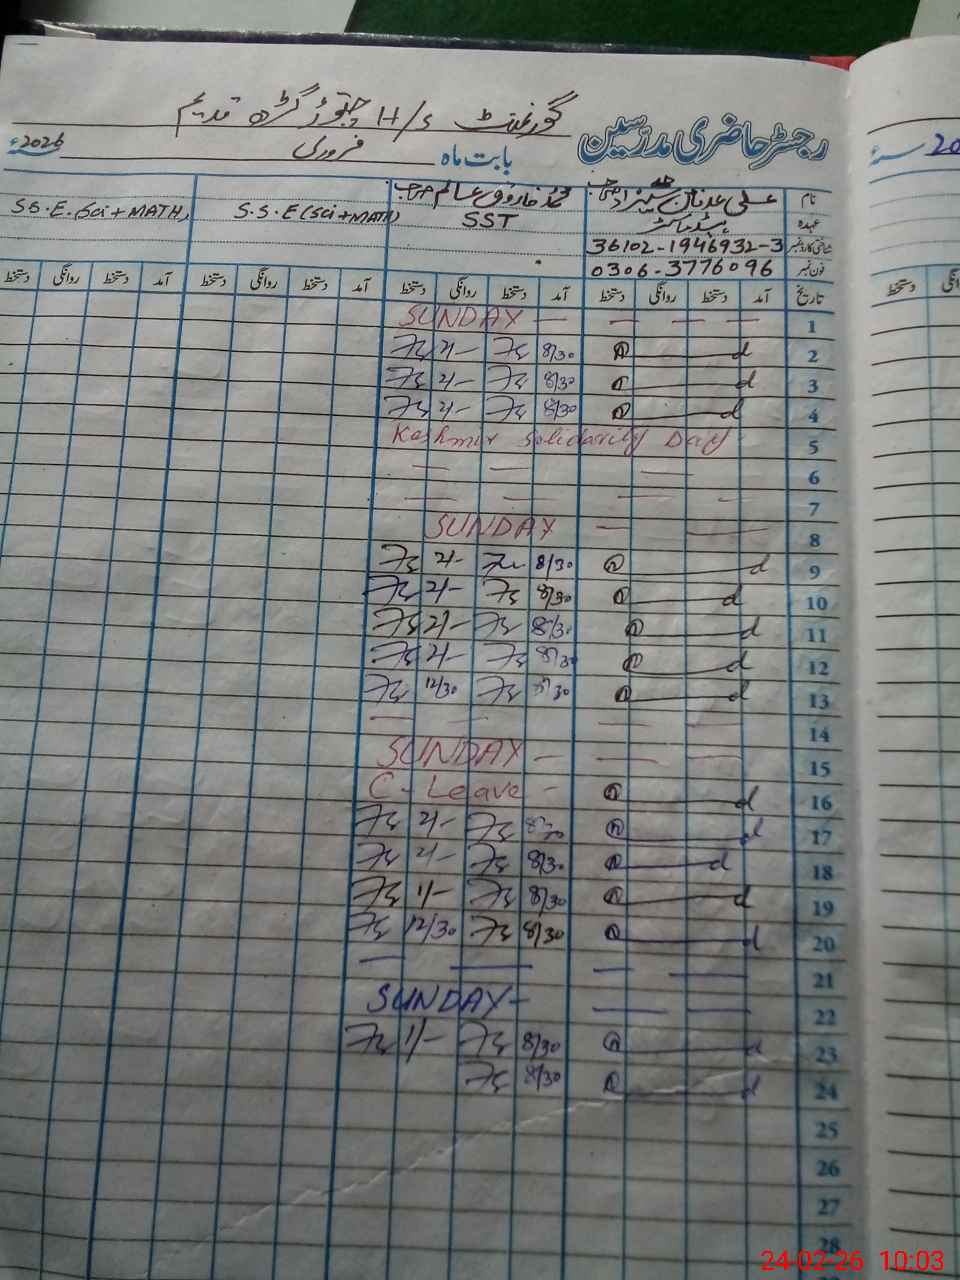 گورنمنٹ H/S چتوڑ گڑھ قدیم
رجسٹر حاضری مدرسین
بابت ماہ فروری 2026ء
نام
محمد فاروق عالم صاحب
عہدہ ہیڈ ماسٹر SST S.S.E (Sci+MATH) S.S.E. (Sci+MATH)
شناختی کارڈ نمبر 36102-1946932-3
فون نمبر 0306-3776096
تاریخ آمد دستخط روانگی دستخط آمد دستخط روانگی دستخط آمد دستخط روانگی دستخط آمد دستخط روانگی دستخط
1 SUNDAY
2 8/30 2/-
3 8/30 2/-
4 8/30 2/-
5 Kashmir Solidarity Day
6
7
8 SUNDAY
9 8/30 2/-
10 8/30 2/-
11 8/30 2/-
12 8/30 2/-
13 8/30 12/30
14
15 SUNDAY
16 C-Leave
17 8/30 2/-
18 8/30 2/-
19 8/30 1/-
20 8/30 12/30
21
22 SUNDAY
23 8/30 1/-
24 8/30
25
26
27
28
دستخط
24-02-26 10:03